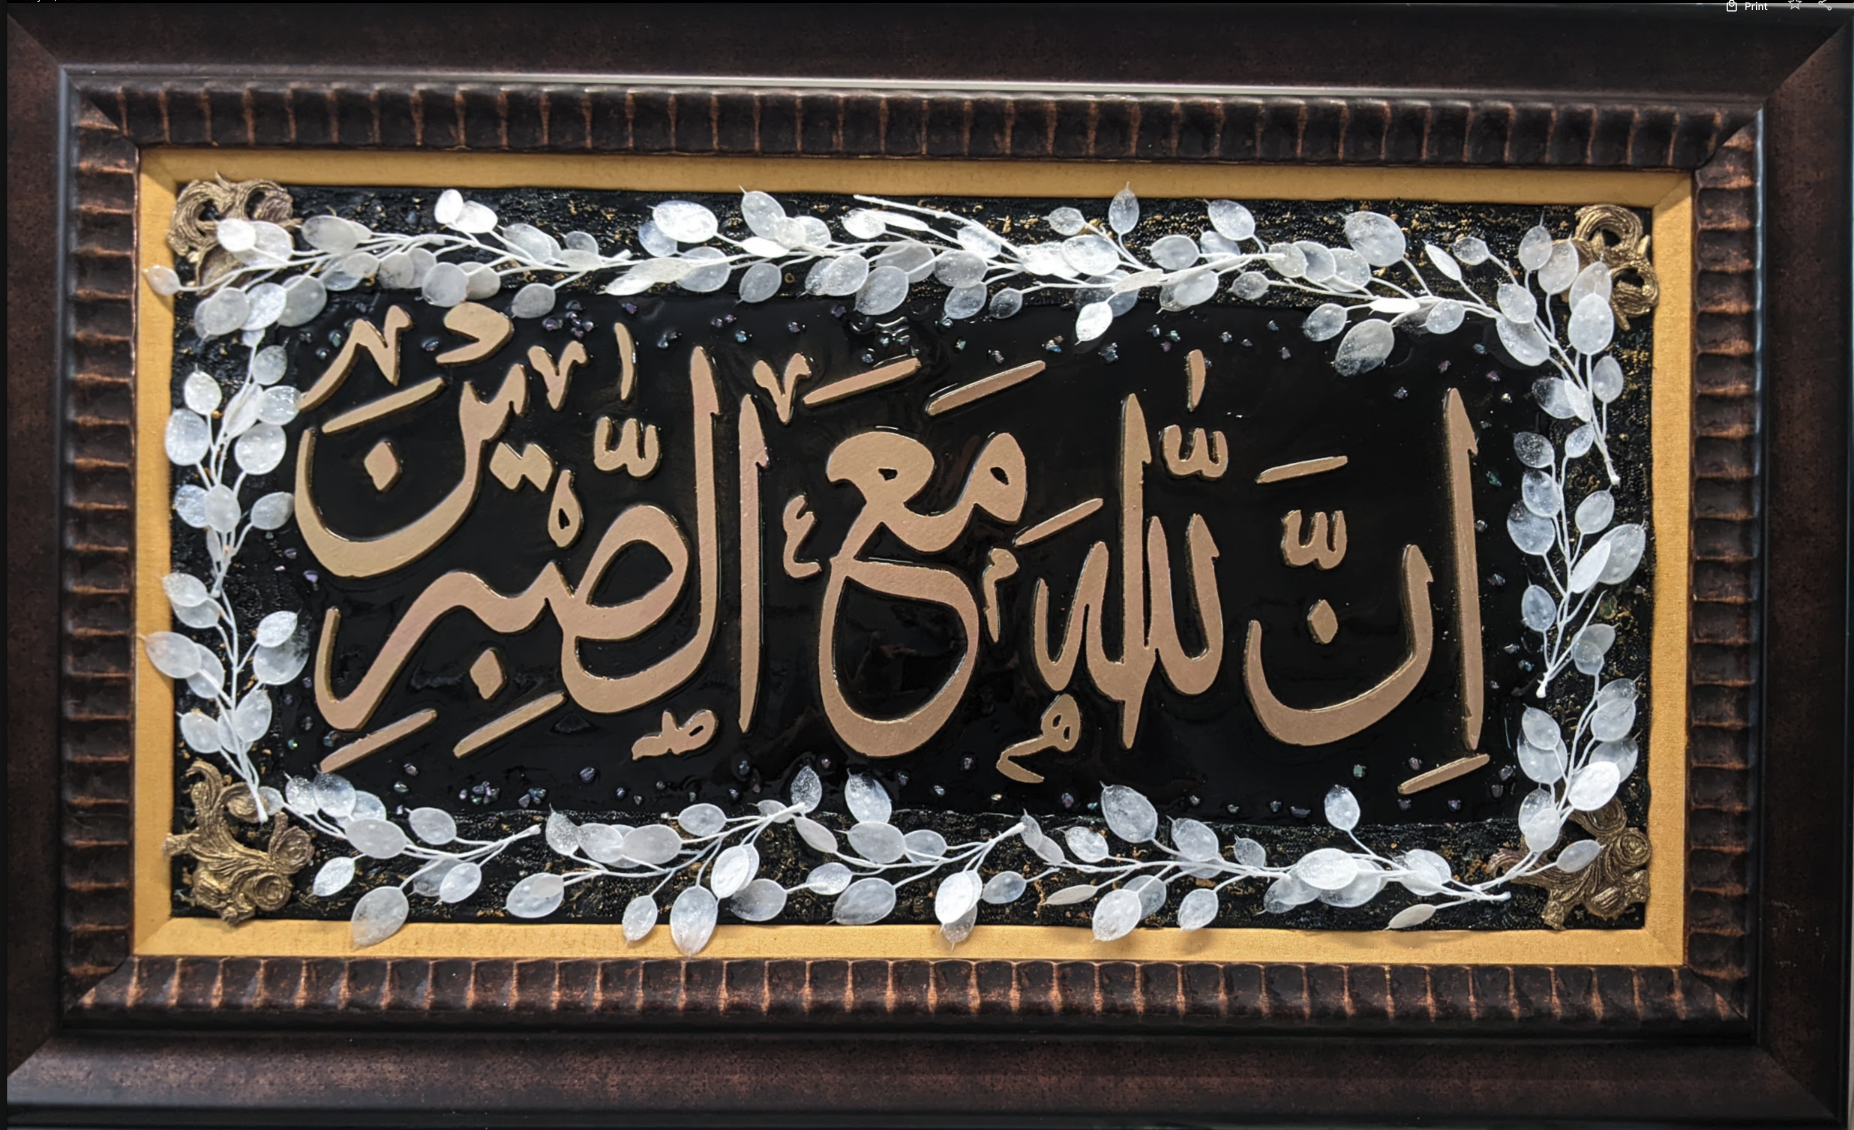 Print
اِنَّ اللّٰهَ مَعَ الصّٰبِرِيْنَ